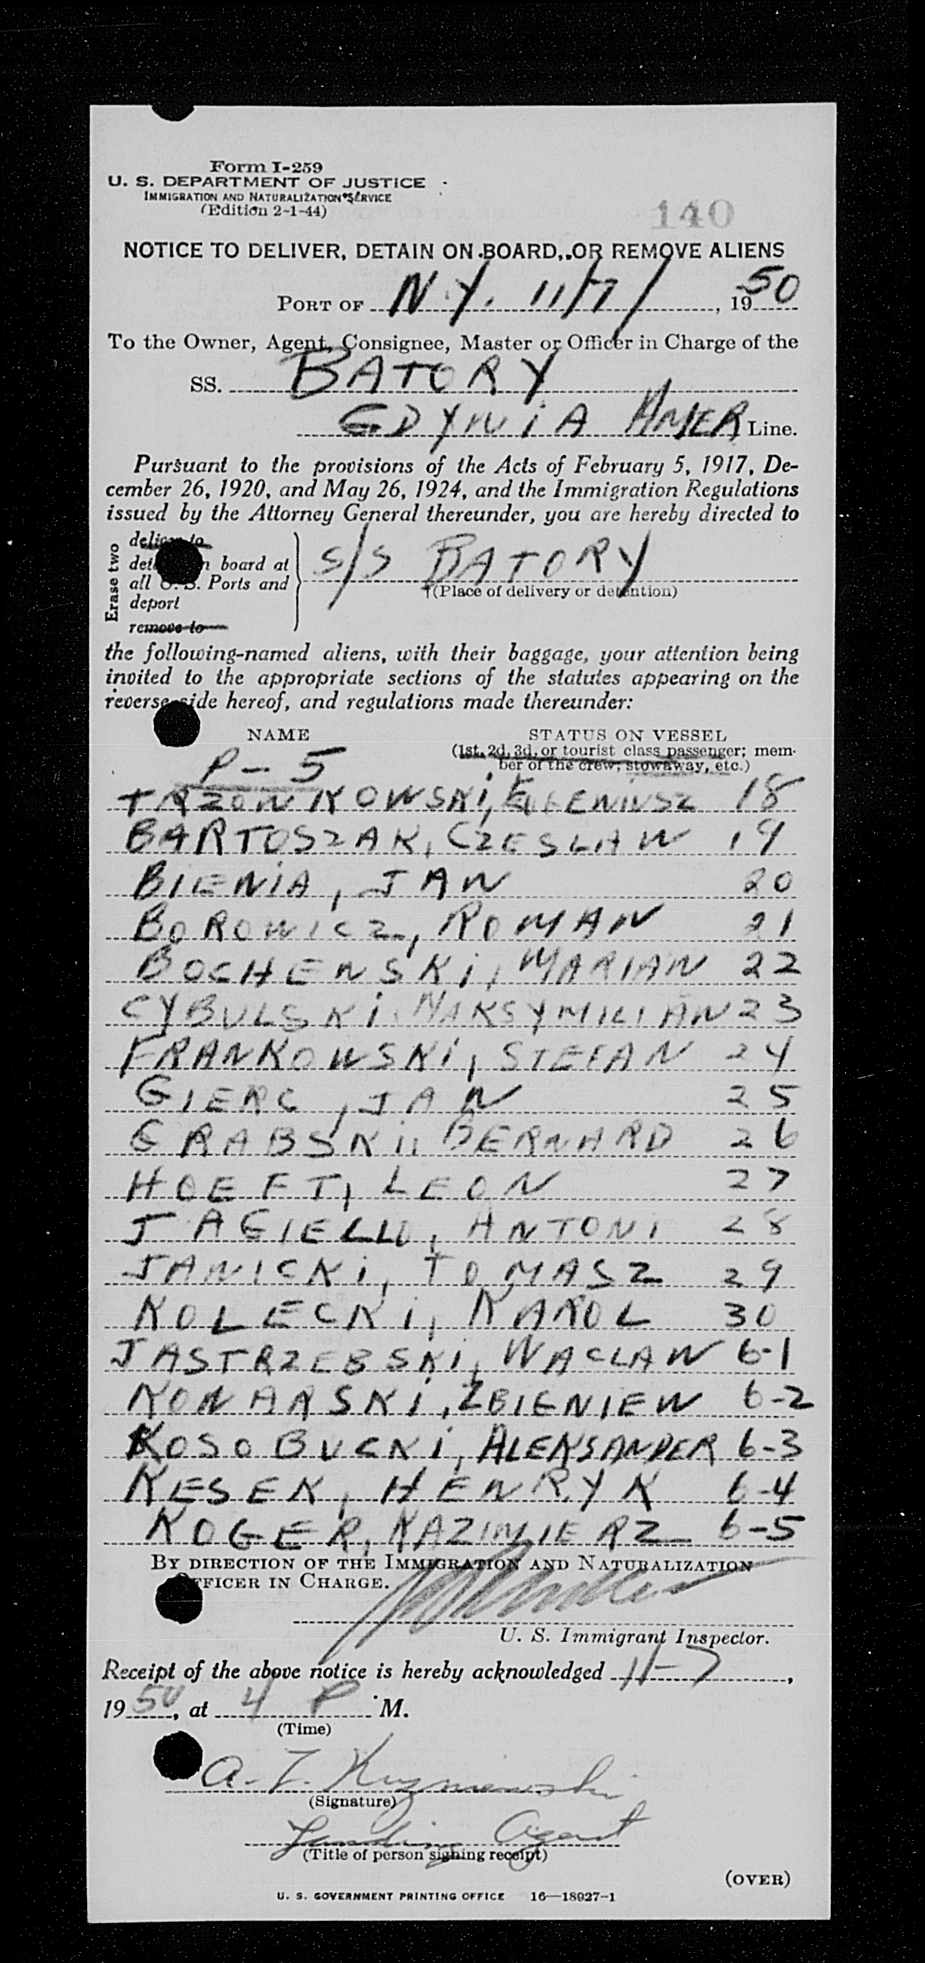 Form I-259
U. S. DEPARTMENT OF JUSTICE
IMMIGRATION AND NATURALIZATION SERVICE
(Edition 2-1-44)
140
NOTICE TO DELIVER, DETAIN ON BOARD, OR REMOVE ALIENS
PORT OF N.Y. 11/7/, 1950
To the Owner, Agent, Consignee, Master or Officer in Charge of the
SS. BATORY
GDYNIA AMER Line.
Pursuant to the provisions of the Acts of February 5, 1917, De-
cember 26, 1920, and May 26, 1924, and the Immigration Regulations
issued by the Attorney General thereunder, you are hereby directed to
Erase two
deliver to
det n board at
all U. S. Ports and
deport
remove to
S/S BATORY
(Place of delivery or detention)
the following-named aliens, with their baggage, your attention being
invited to the appropriate sections of the statutes appearing on the
reverse side hereof, and regulations made thereunder:
NAME STATUS ON VESSEL
(1st, 2d, 3d, or tourist class passenger; mem-
ber of the crew; stowaway, etc.)
P-5
TRZONKOWSKI, EUGENIUSZ 18
BARTOSZAK, CZESLAW 19
BIENIA, JAN 20
BOROWICZ, ROMAN 21
BOCHENSKI, MARIAN 22
CYBULSKI, MAKSYMILIAN 23
FRANKOWSKI, STEFAN 24
GIERC, JAN 25
GRABSKI, BERNARD 26
HOEFT, LEON 27
JAGIELLO, ANTONI 28
JANICKI, TOMASZ 29
KOLECKI, KAROL 30
JASTRZEBSKI, WACLAW 6-1
KONARSKI, ZBIENIEW 6-2
KOSOBUCKI, ALEKSANDER 6-3
KESEK, HENRYK 6-4
KOGER, KAZIMIERZ 6-5
BY DIRECTION OF THE IMMIGRATION AND NATURALIZATION
OFFICER IN CHARGE.
U. S. Immigrant Inspector.
Receipt of the above notice is hereby acknowledged 11-7,
1950, at 4 P M.
(Time)
A. T.
(Signature)
Landing Agent
(Title of person signing receipt)
(OVER)
U. S. GOVERNMENT PRINTING OFFICE 16—18027-1